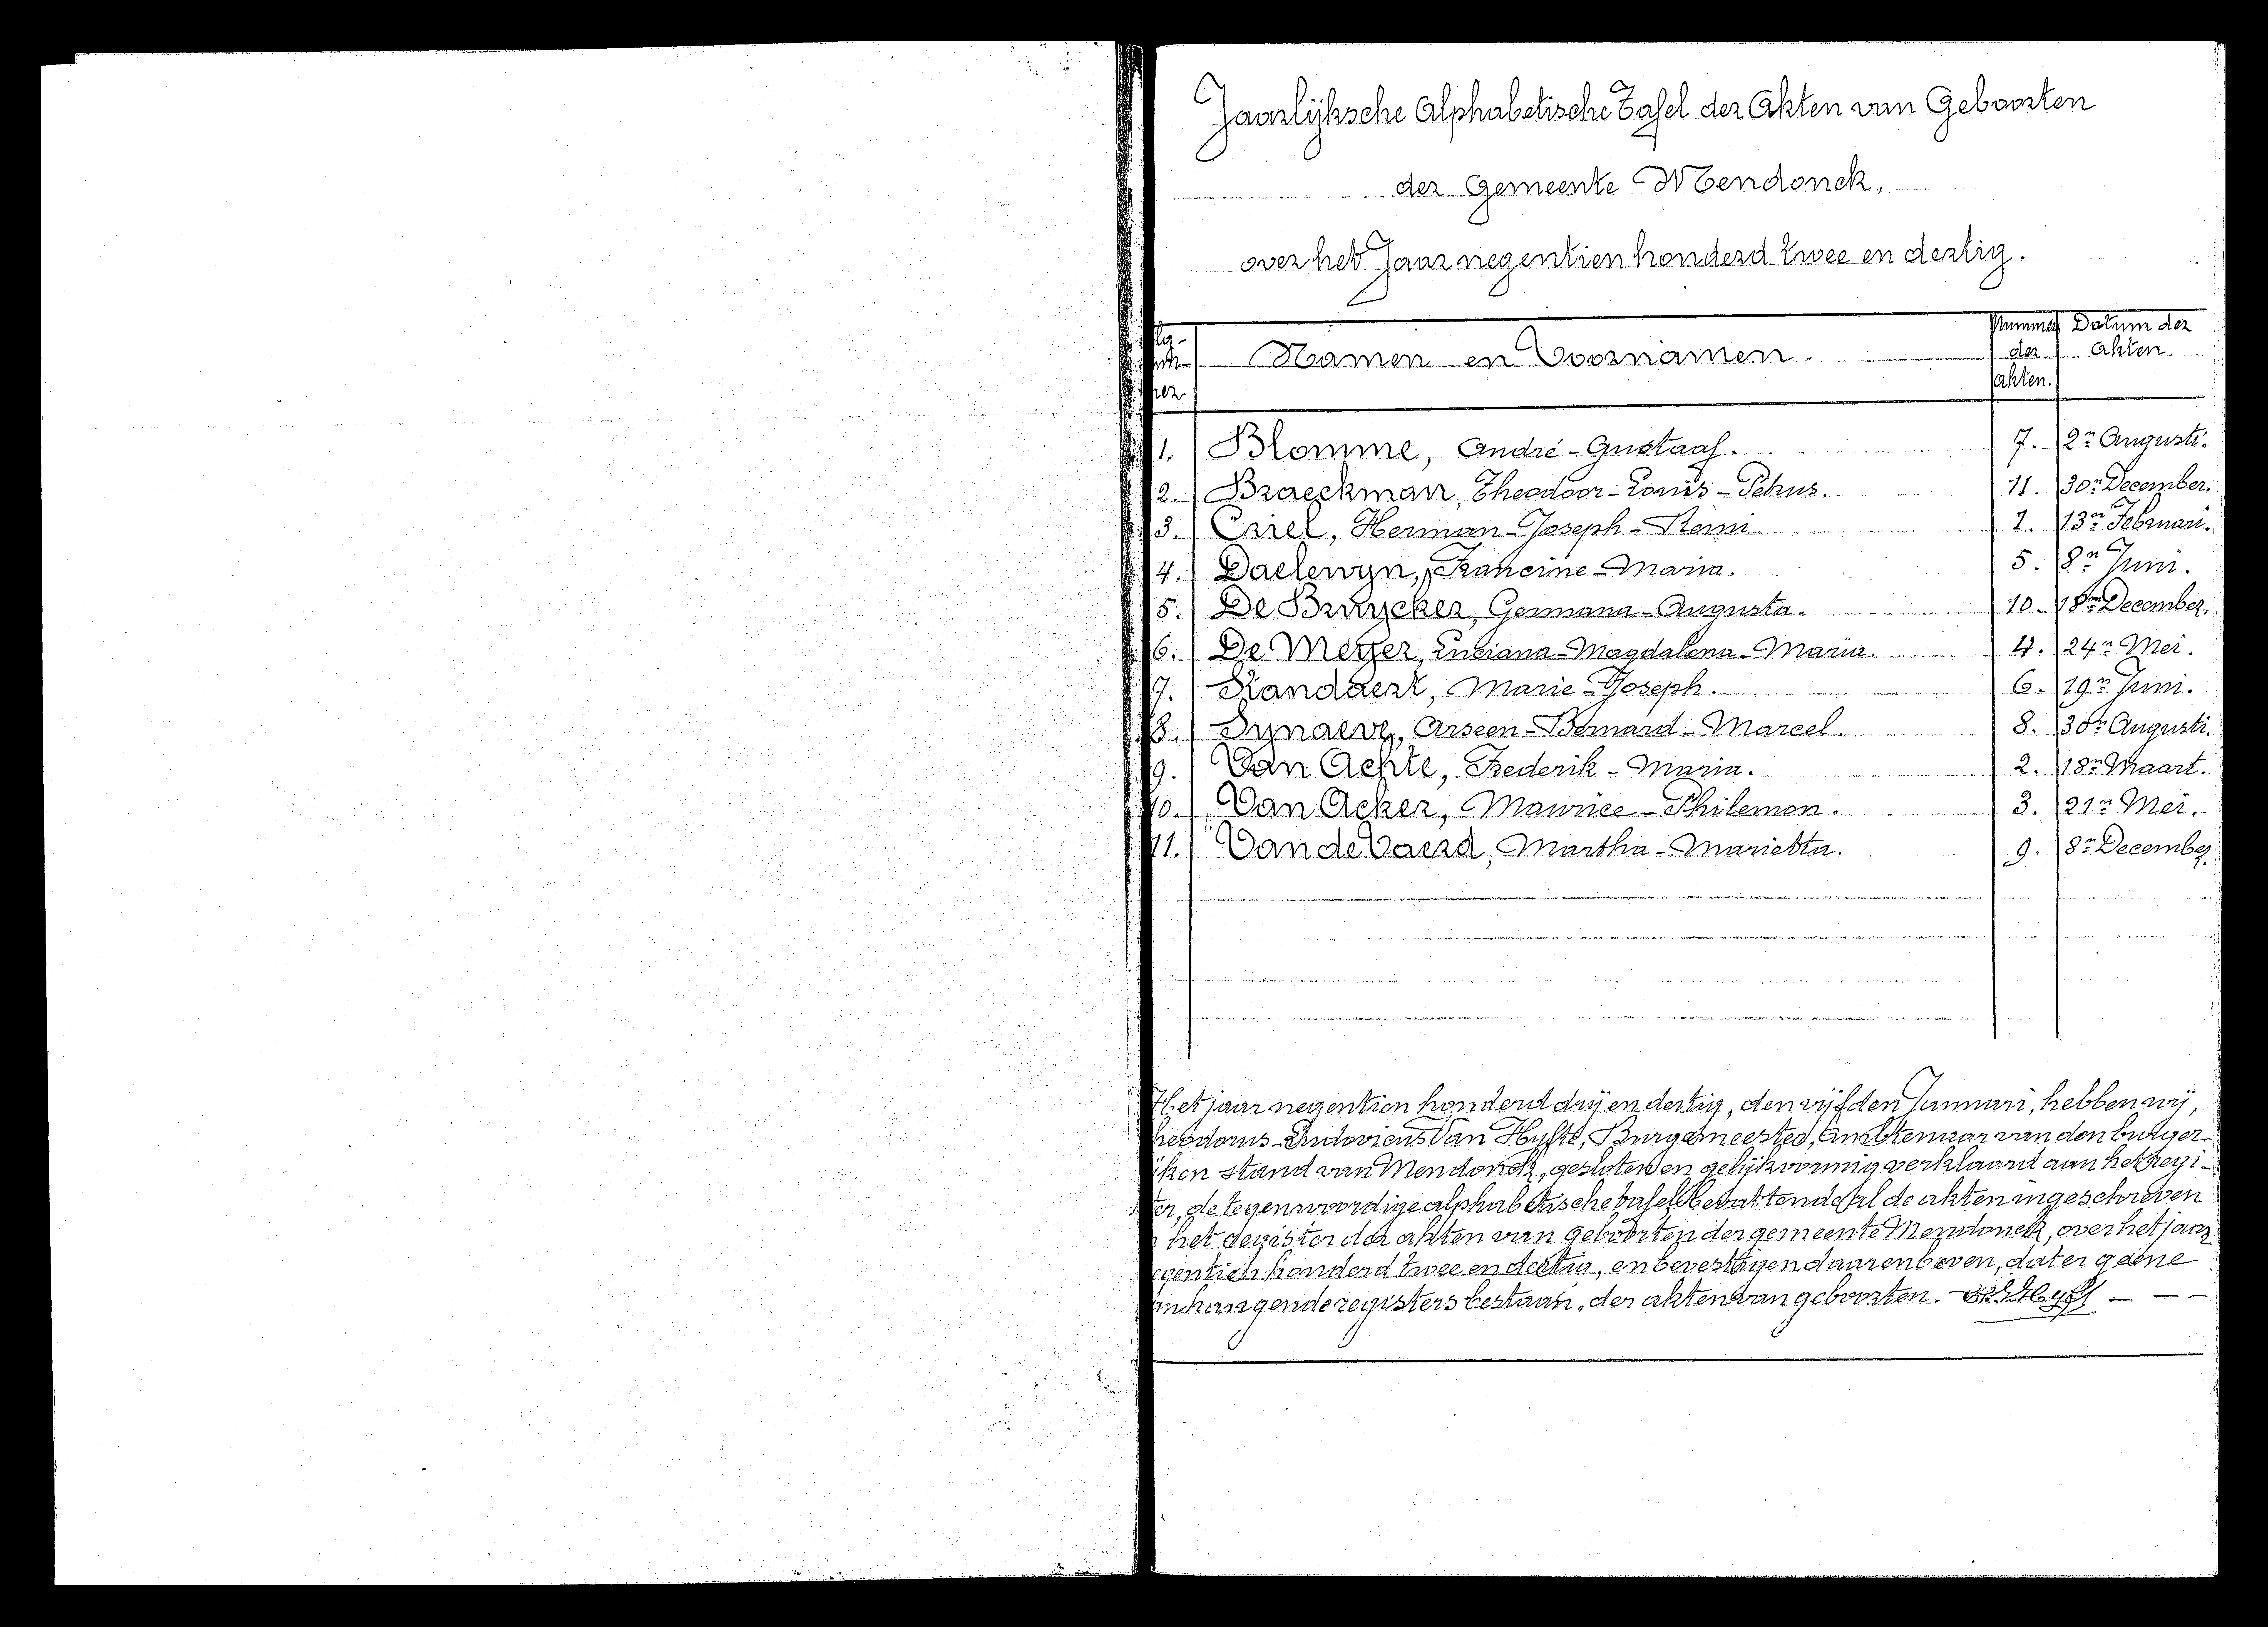 Jaarlijksche Alphabetische Tafel der Akten van Geboorten
der Gemeente Mendonck,
over het Jaar negentien honderd twee en dertig.
Namen en Voornamen. Nummer der akten. Datum der akten.
1. Blomme, André-Gustaaf. 7. 2n Augusti.
2. Braeckman, Theodoor-Louis-Petrus. 11. 30n December.
3. Criel, Herman-Joseph-Remi. 1. 13n Februari.
4. Daelewyn, Francine-Maria. 5. 8n Juni.
5. De Bruycker, Germana-Augusta. 10. 18n December.
6. De Meyer, Luciana-Magdalena-Maria. 4. 24n Mei.
7. Standaert, Marie-Joseph. 6. 19n Juni.
8. Synaeve, Arseen-Bernard-Marcel. 8. 30n Augusti.
9. Van Achte, Frederik-Maria. 2. 18n Maart.
10. Van Acker, Maurice-Philemon. 3. 21n Mei.
11. Van de Vaerd, Martha-Marietta. 9. 8n December.
Het jaar negentien honderd drij en dertig, den vijfden Januari, hebben wij,
heodorus-Ludovicus Van Hyfte, Burgemeester, Ambtenaar van den burger-
ijken stand van Mendonck, gesloten en gelijkvormig verklaard aan het regi-
ter, de tegenwoordige alphabetische tafel bevattende al de akten ingeschreven
het register der akten van geboorten der gemeente Mendonck, over het jaar
egentien honderd twee en dertig, en bevestigen daarenboven, dat er geene
anhangende registers bestaan, der akten van geboorten.